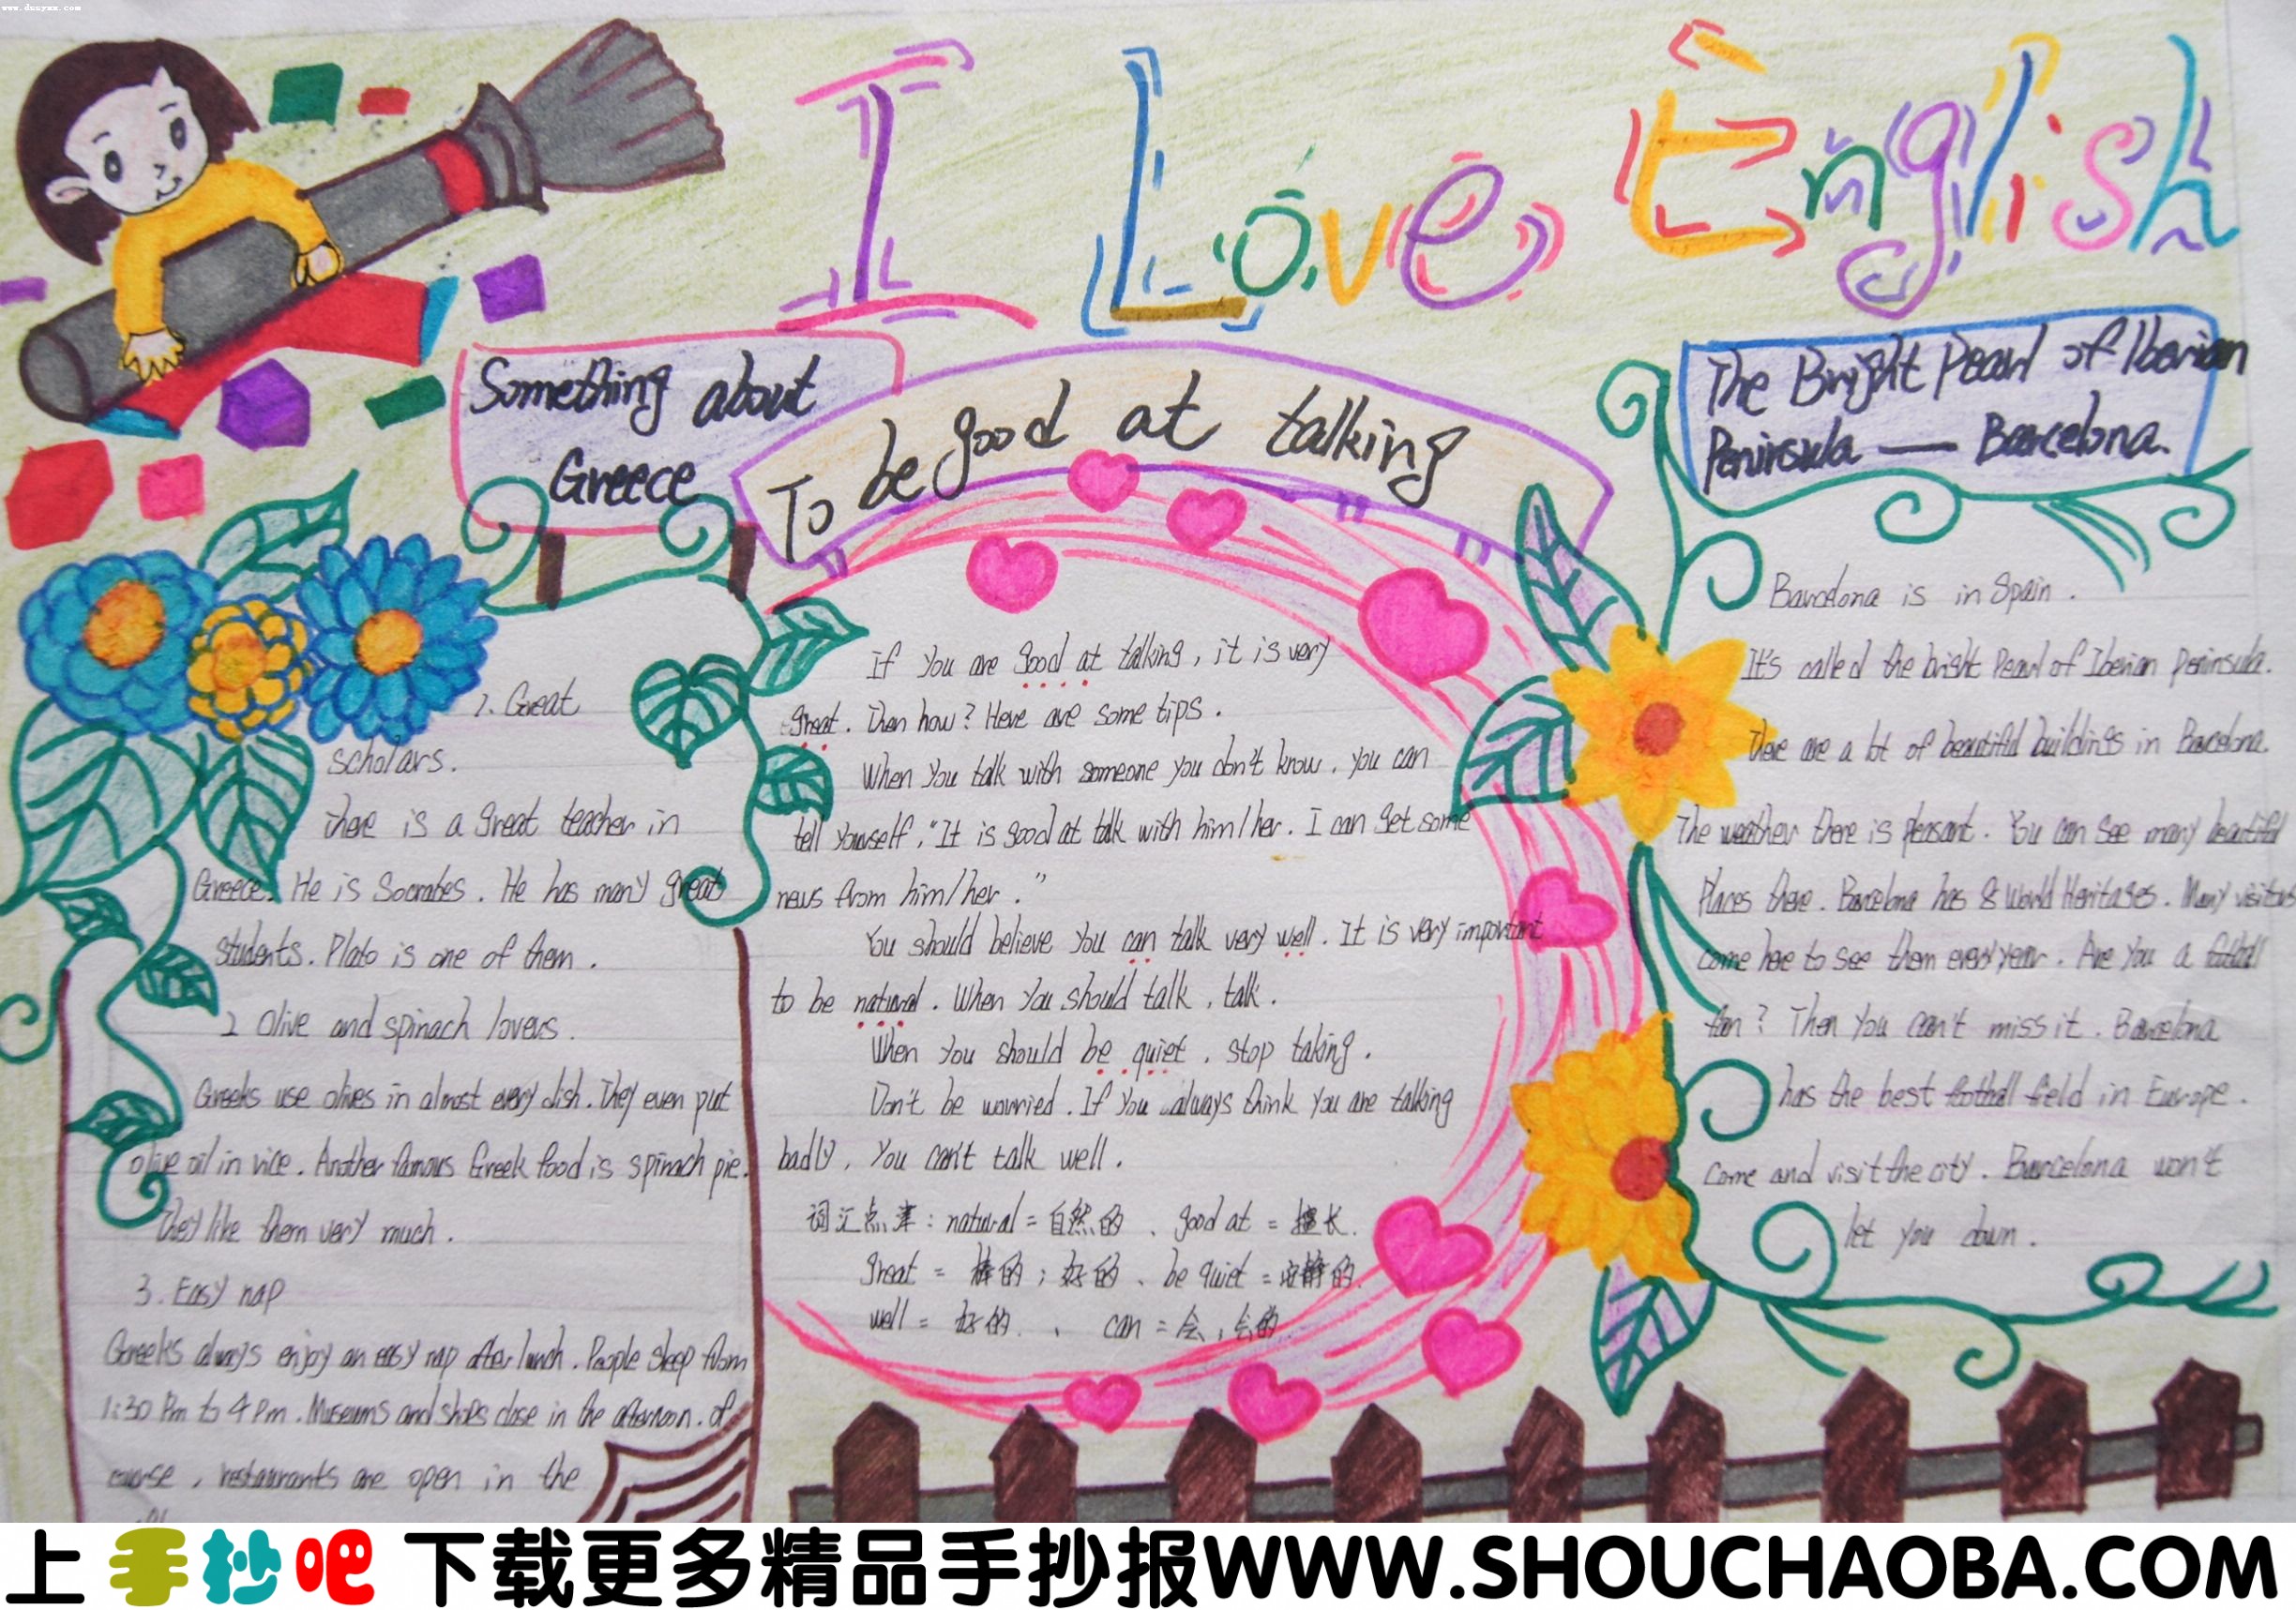 www.duxyxx.com
I Love English
Something about
Greece
1. Great
scholars.
There is a great teacher in
Greece. He is Socrates. He has many great
students. Plato is one of them.
2 Olive and spinach lovers.
Greeks use olives in almost every dish. They even put
olive oil in rice. Another famous Greek food is spinach pie.
They like them very much.
3. Easy nap
Greeks always enjoy an easy nap after lunch. People sleep from
1:30 Pm to 4 Pm. Museums and shops close in the afternoon. of
course, restaurants are open in the
To be good at talking
If you are good at talking, it is very
great. Then how? Here are some tips.
When you talk with someone you don't know, you can
tell yourself, "It is good at talk with him/her. I can get some
news from him/her."
You should believe you can talk very well. It is very important
to be natural. When you should talk, talk.
When you should be quiet, stop taking.
Don't be worried. If you always think you are talking
badly, you can't talk well.
词汇点津: natural = 自然的、good at = 擅长.
great = 棒的; 好的、be quiet = 安静的.
well = 好的、can = 会, 会的
The Bright Pearl of Iberian
Peninsula — Barcelona.
Barcelona is in Spain.
It's called the bright Pearl of Iberian Peninsula.
There are a lot of beautiful buildings in Barcelona.
The weather there is pleasant. You can see many beautiful
Places there. Barcelona has 8 World Heritages. Many visitors
come here to see them every year. Are you a football
fan? Then you can't miss it. Barcelona
has the best football field in Europe.
Come and visit the city. Barcelona won't
let you down.
上手抄吧 下载更多精品手抄报WWW.SHOUCHAOBA.COM